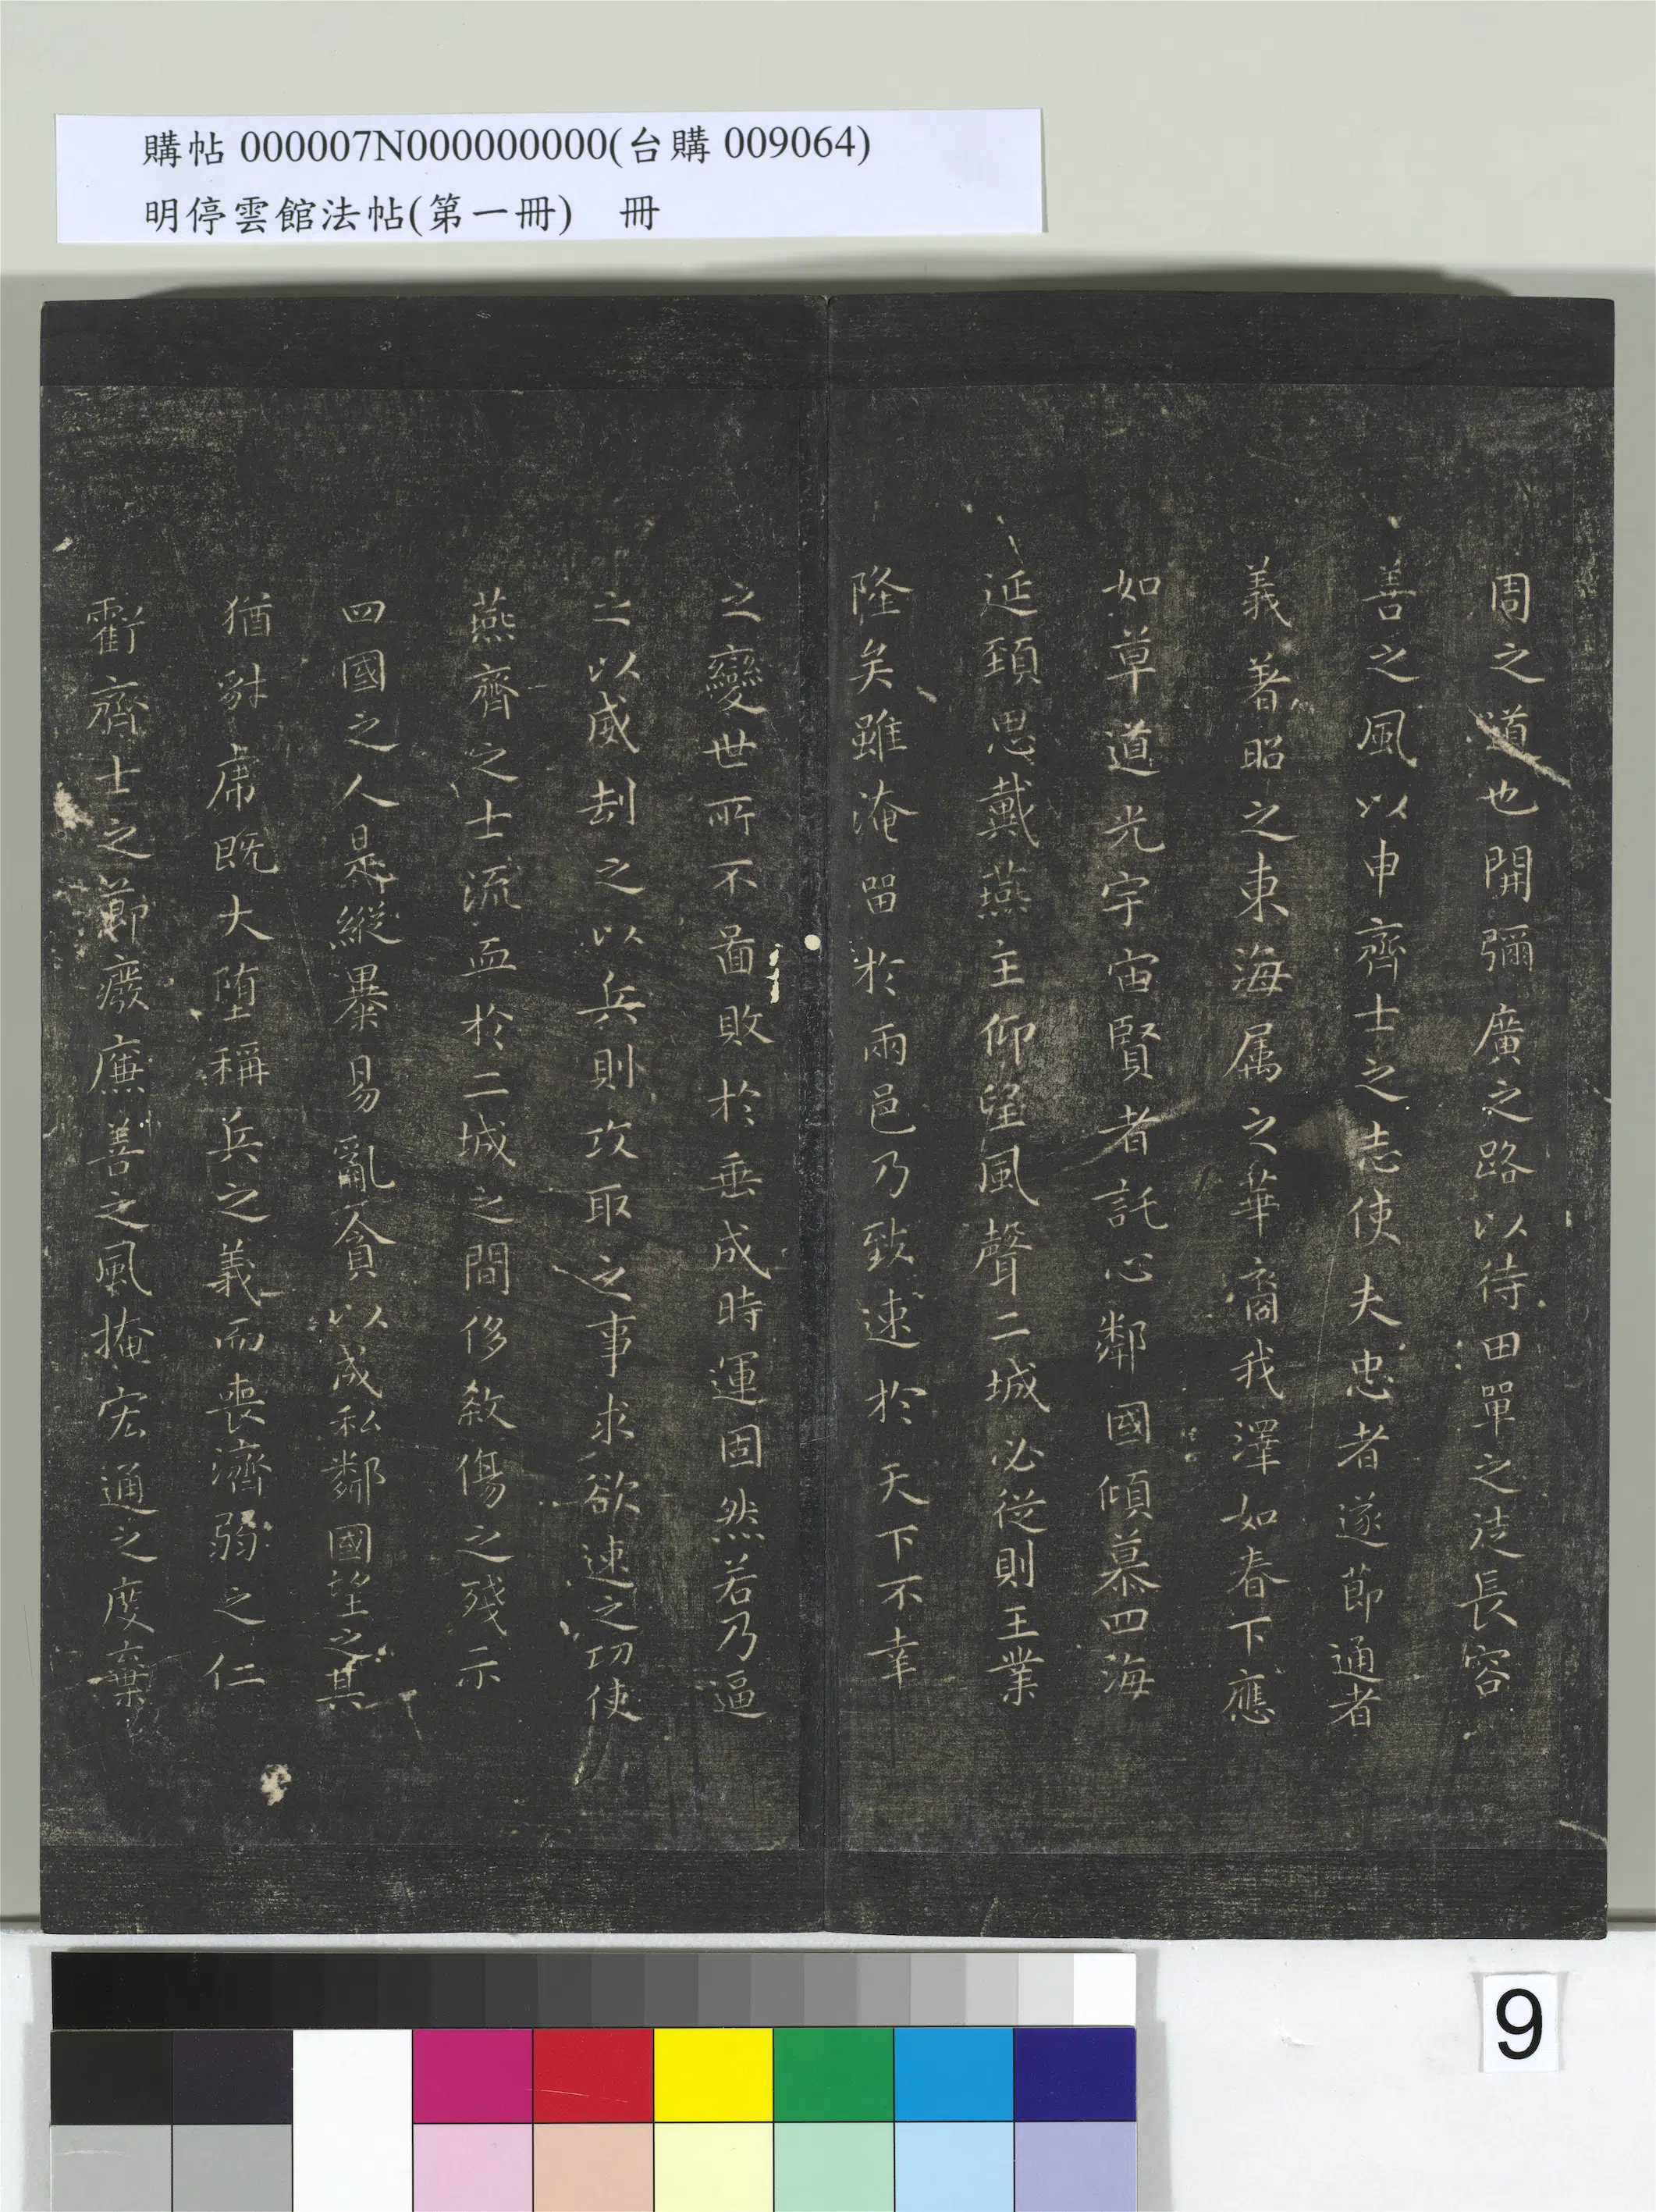 購帖 000007N000000000(台購 009064)
明停雲館法帖(第一冊)　冊
周之道也開彌廣之路以待田單之徒長容
善之風以申齊士之志使夫忠者遂節通者
義著昭之東海属之華裔我澤如春下應
如草道光宇宙賢者託心鄰國傾慕四海
延頚思戴燕主仰望風聲二城必從則王業
隆矣雖淹留於兩邑乃致速於天下不幸
之變世所不啚敗於垂成時運固然若乃逼
之以威刦之以兵則攻取之事求欲速之功使
燕齊之士流血於二城之間侈敘傷之殘示
四國之人是縱暴易亂貪以成私鄰國望之其
猶豺虎既大堕稱兵之義而喪濟弱之仁
虧齊士之節癈廉善之風掩宏通之度棄
9